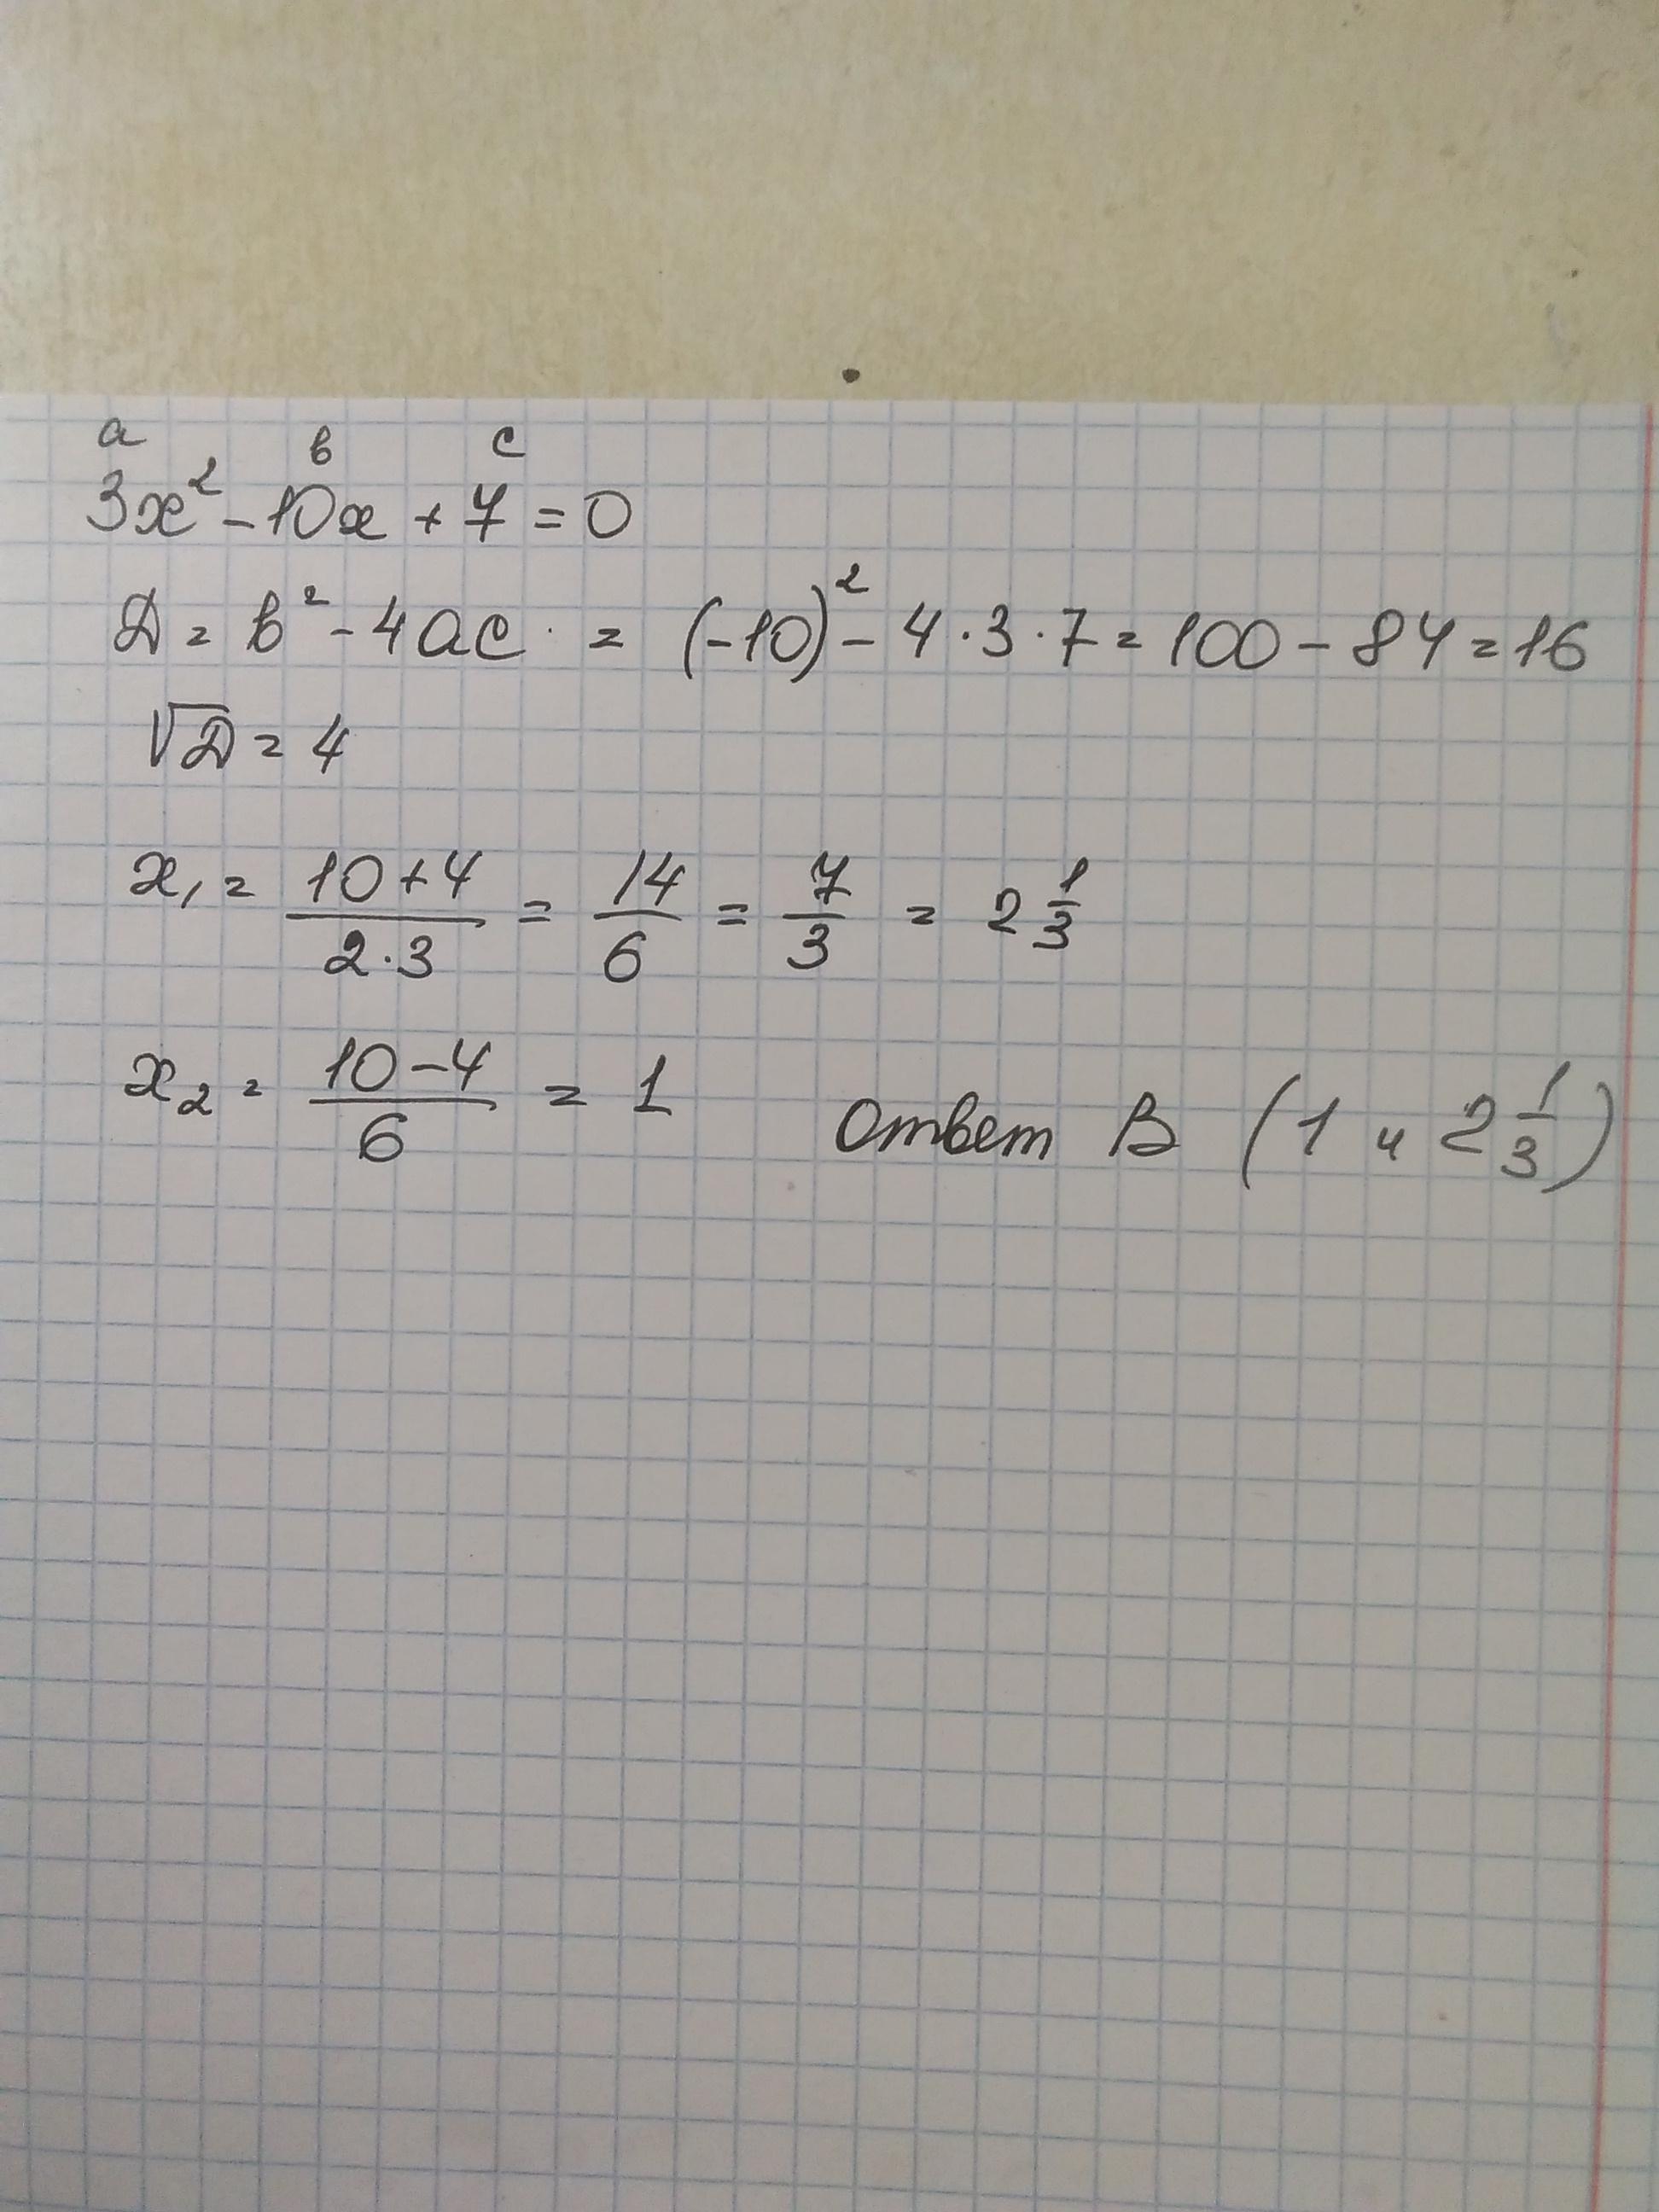 a в c
3x² - 10x + 7 = 0
D = в² - 4ac = (-10)² - 4·3·7 = 100 - 84 = 16
√D = 4
x₁ = (10+4)/(2·3) = 14/6 = 7/3 = 2 1/3
x₂ = (10-4)/6 = 1 ответ В (1 и 2 1/3)